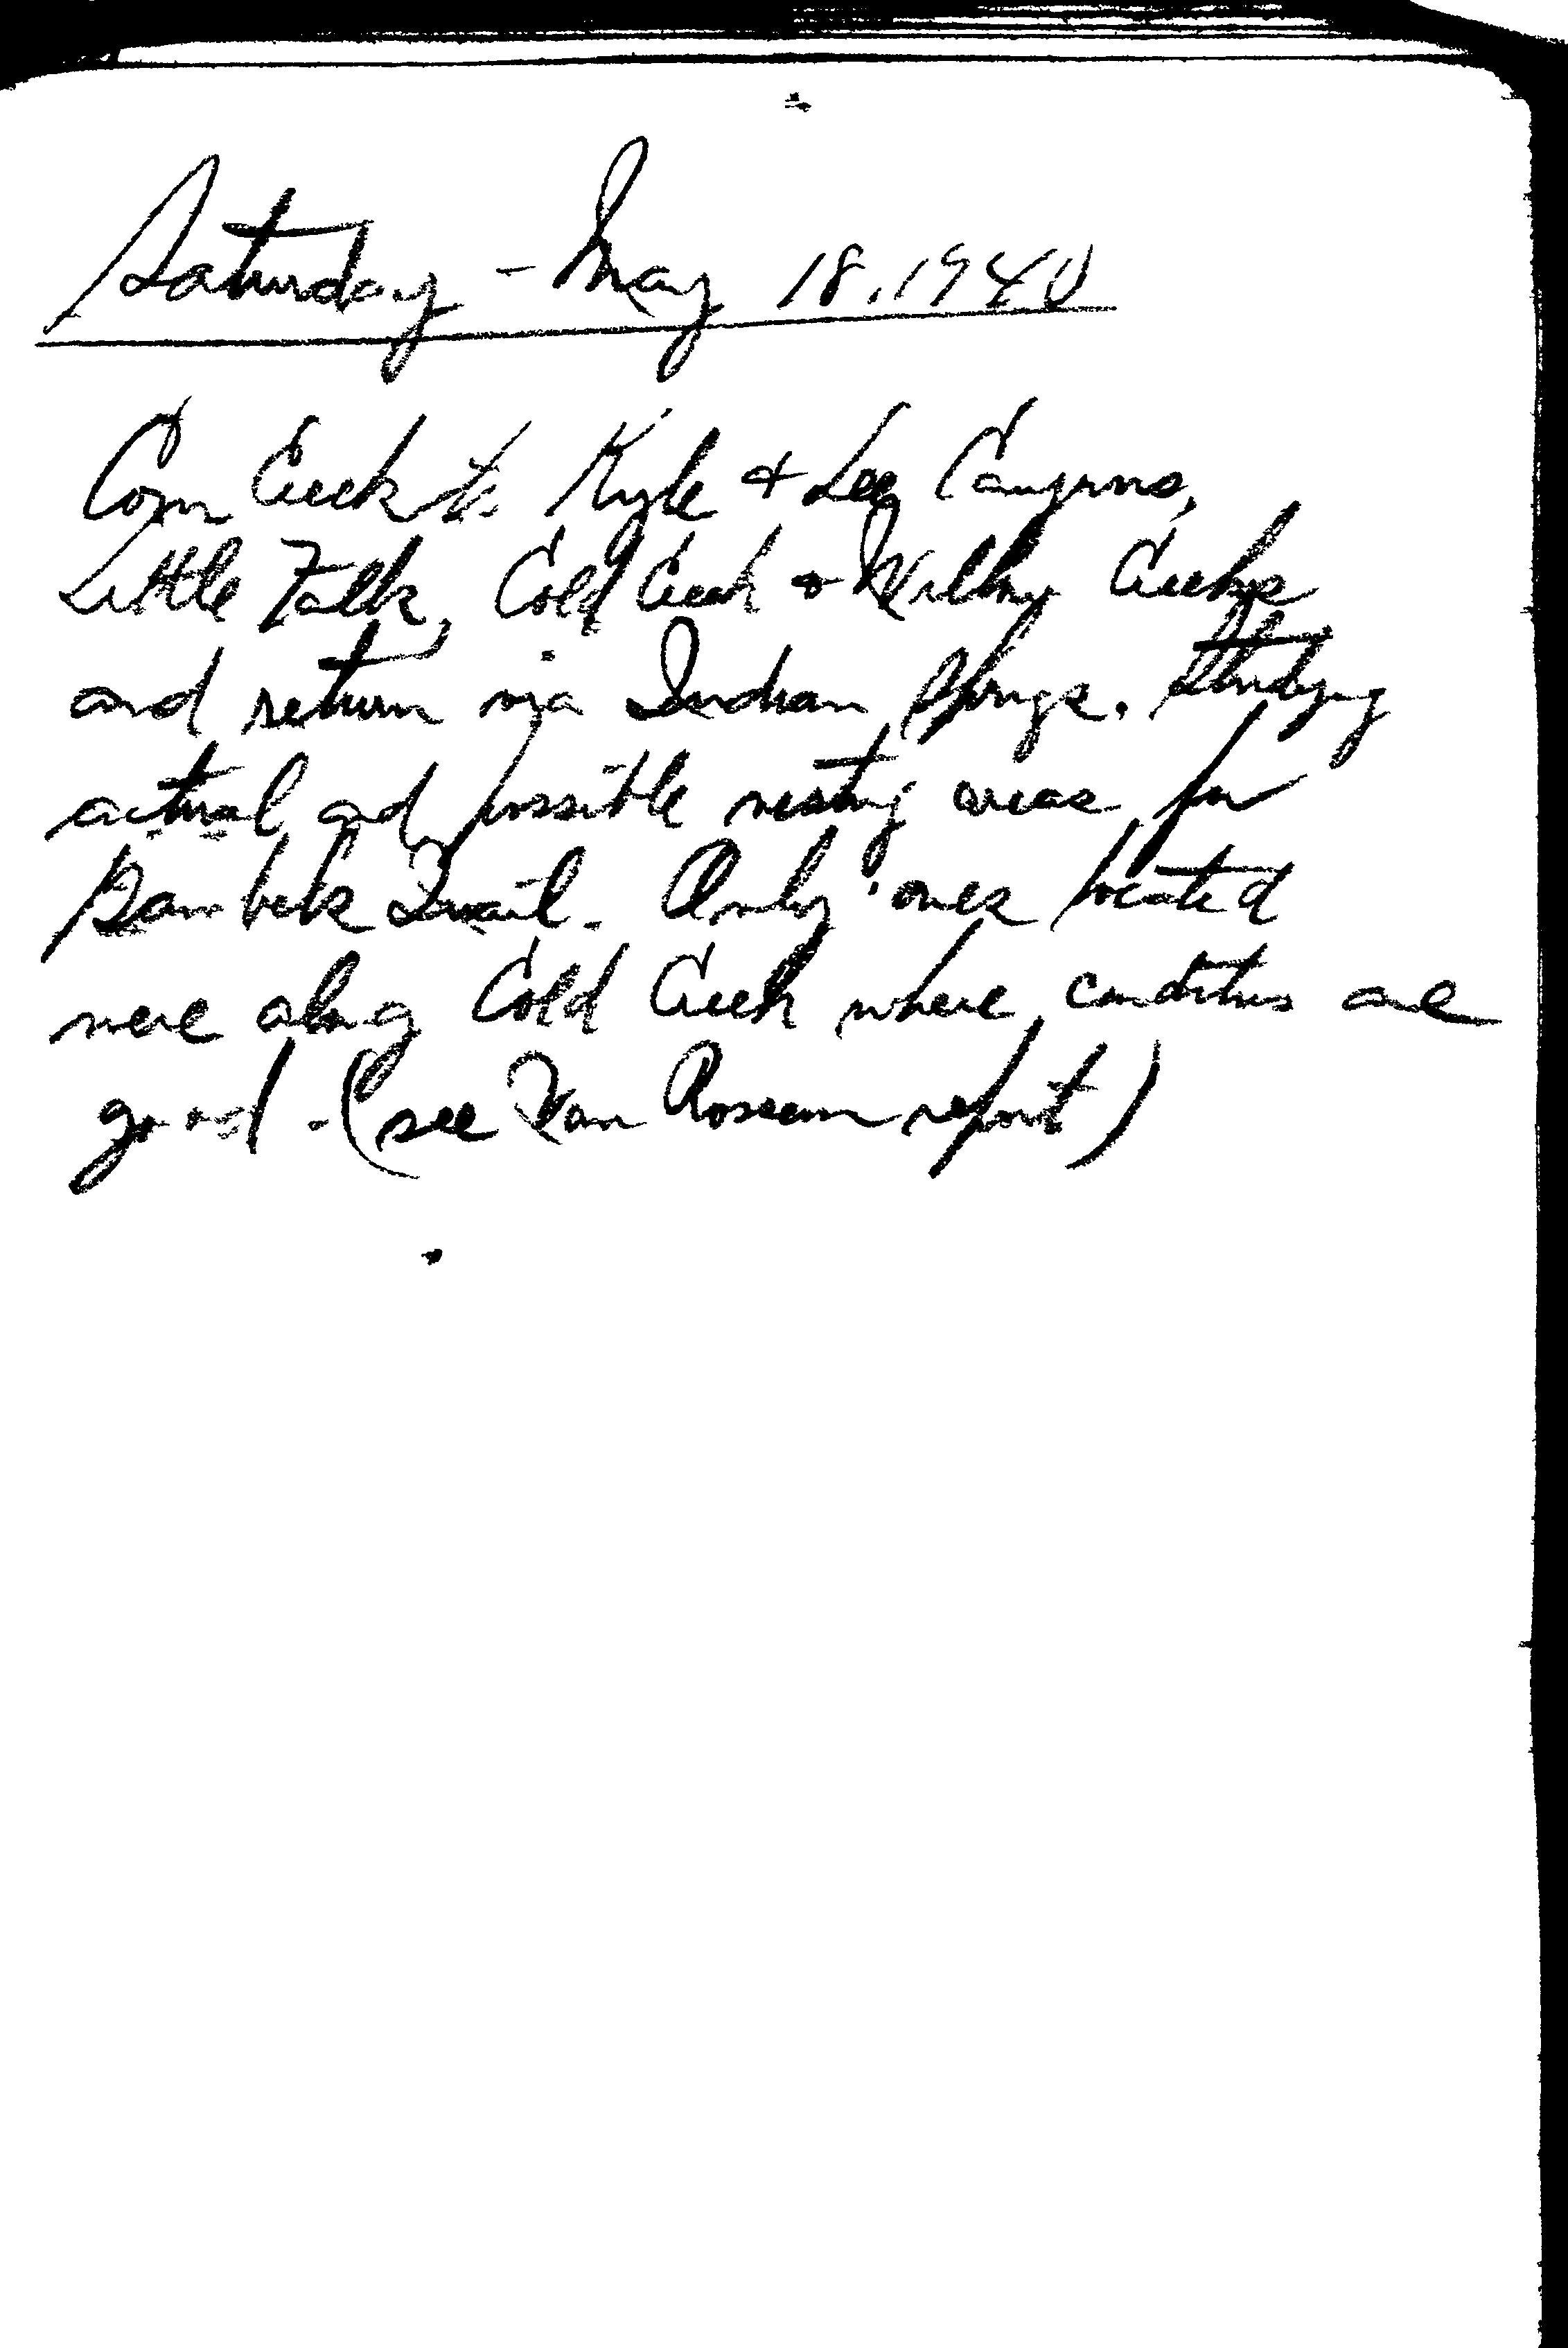 Saturday - May 18, 1940
Corn Creek to Kyle & Lee Canyons,
Little Falls, Cold Creek & Willow Creeks
and return via Indian Springs. Studying
actual and possible nesting areas for
Gambels Quail. Only ones located
were along Cold Creek where conditions are
good - (see Van Rossem report)